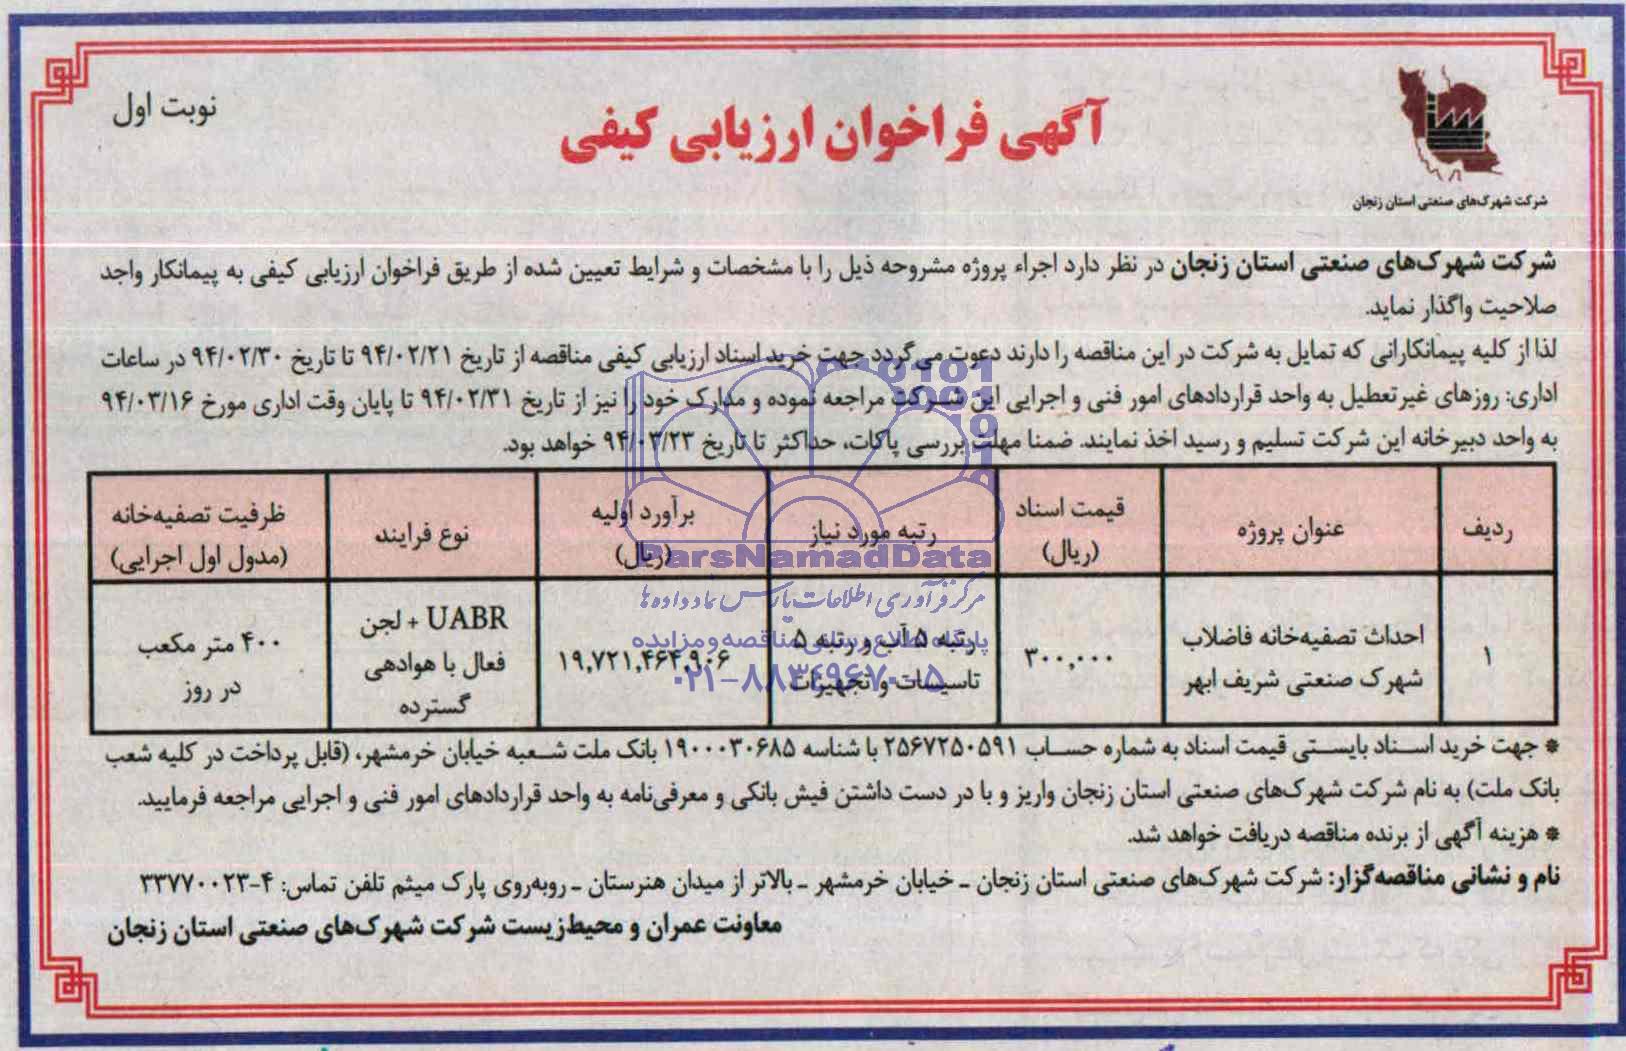 نوبت اول
آگهی فراخوان ارزیابی کیفی
شرکت شهرک‌های صنعتی استان زنجان
شرکت شهرک‌های صنعتی استان زنجان در نظر دارد اجراء پروژه مشروحه ذیل را با مشخصات و شرایط تعیین شده از طریق فراخوان ارزیابی کیفی به پیمانکار واجد
صلاحیت واگذار نماید.
لذا از کلیه پیمانکارانی که تمایل به شرکت در این مناقصه را دارند دعوت می‌گردد جهت خرید اسناد ارزیابی کیفی مناقصه از تاریخ ۹۴/۰۲/۲۱ تا تاریخ ۹۴/۰۲/۳۰ در ساعات
اداری: روزهای غیرتعطیل به واحد قراردادهای امور فنی و اجرایی این شرکت مراجعه نموده و مدارک خود را نیز از تاریخ ۹۴/۰۲/۳۱ تا پایان وقت اداری مورخ ۹۴/۰۳/۱۶
به واحد دبیرخانه این شرکت تسلیم و رسید اخذ نمایند. ضمنا مهلت بررسی پاکات، حداکثر تا تاریخ ۹۴/۰۳/۲۳ خواهد بود.
ردیف
عنوان پروژه
قیمت اسناد
(ریال)
رتبه مورد نیاز
برآورد اولیه
(ریال)
نوع فرایند
ظرفیت تصفیه‌خانه
(مدول اول اجرایی)
۱
احداث تصفیه‌خانه فاضلاب
شهرک صنعتی شریف ابهر
۳۰۰,۰۰۰
رتبه ۵ آب و رتبه ۵
تاسیسات و تجهیزات
۱۹,۷۲۱,۴۶۴,۹۰۶
UABR + لجن
فعال با هوادهی
گسترده
۴۰۰ متر مکعب
در روز
ParsNamadData
مرکز فرآوری اطلاعات پارس نماد داده ها
پایگاه اطلاع رسانی مناقصه و مزایده
۰۲۱-۸۸۳۴۹۶۷۰-۵
* جهت خرید اسناد بایستی قیمت اسناد به شماره حساب ۲۵۶۷۲۵۰۵۹۱ با شناسه ۱۹۰۰۰۳۰۶۸۵ بانک ملت شعبه خیابان خرمشهر، (قابل پرداخت در کلیه شعب
بانک ملت) به نام شرکت شهرک‌های صنعتی استان زنجان واریز و با در دست داشتن فیش بانکی و معرفی‌نامه به واحد قراردادهای امور فنی و اجرایی مراجعه فرمایید.
* هزینه آگهی از برنده مناقصه دریافت خواهد شد.
نام و نشانی مناقصه‌گزار: شرکت شهرک‌های صنعتی استان زنجان ـ خیابان خرمشهر ـ بالاتر از میدان هنرستان ـ روبه‌روی پارک میثم تلفن تماس: ۴-۳۳۷۷۰۰۲۳
معاونت عمران و محیط‌زیست شرکت شهرک‌های صنعتی استان زنجان